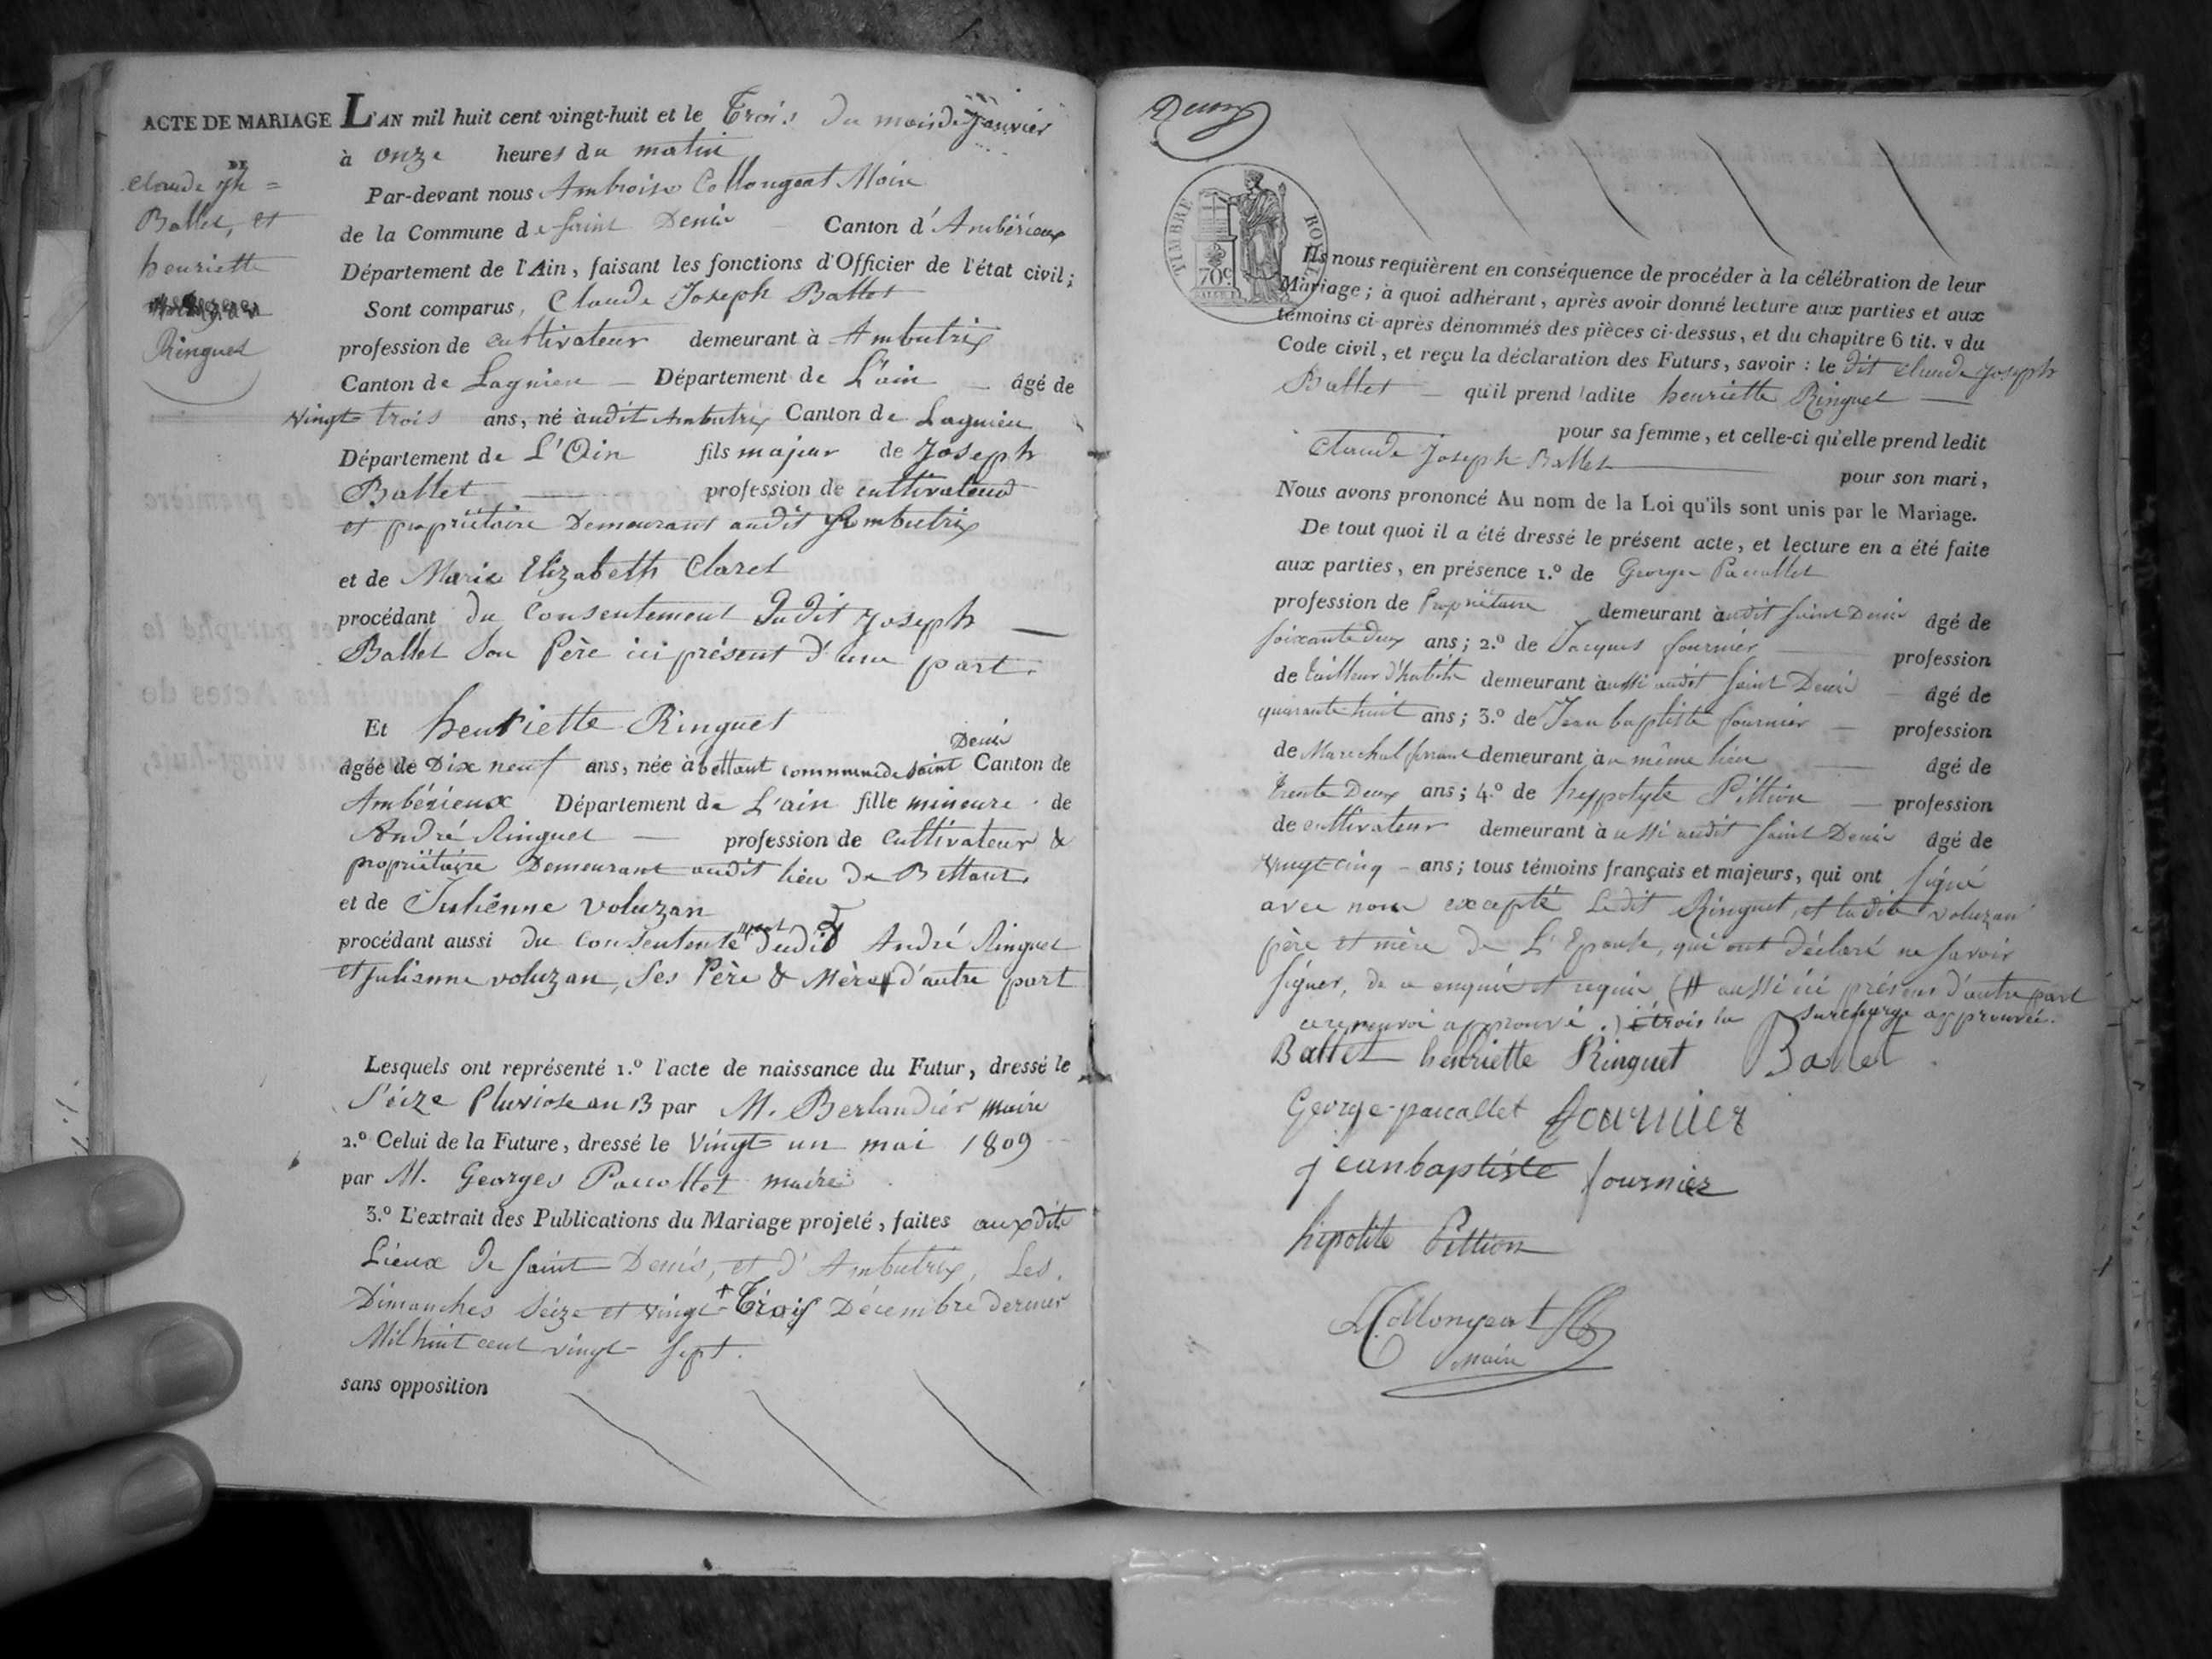 ACTE DE MARIAGE
DE
Claude Jph =
Ballet, et
henriette
Ringuet
L'AN mil huit cent vingt-huit et le Trois du mois de Janvier
à onze heures du matin
Par-devant nous Ambroise Collongeat Maire
de la Commune de Saint Denis Canton d'Ambérieux
Département de l'Ain, faisant les fonctions d'Officier de l'état civil;
Sont comparus, Claude Joseph Ballet
profession de cultivateur demeurant à Ambutrix
Canton de Lagnieu Département de L'ain âgé de
vingt trois ans, né audit Ambutrix Canton de Lagnieu
Département de L'Ain fils majeur de Joseph
Ballet profession de cultivateur
et propriétaire Demeurant audit Ambutrix
et de Marie Elizabeth Claret
procédant du Consentement Dudit Joseph
Ballet Son Père ici présent d'une part.
Et henriette Ringuet
âgée de Dix neuf ans, née à bettant commune de Saint Denis Canton de
Ambérieux Département de L'ain fille mineure de
André Ringuet profession de cultivateur &
propriétaire Demeurant audit lieu de Bettant
et de Julienne voluzan
procédant aussi du Consentement dudit André Ringuet
et Julienne voluzan, Ses Père & Mère # d'autre part
Lesquels ont représenté 1.º l'acte de naissance du Futur, dressé le
Séize Pluviose an 13 par M. Berlandiér maire
2.º Celui de la Future, dressé le Vingt un mai 1809
par M. Georges Paccallet maire
3.º L'extrait des Publications du Mariage projeté, faites auxdits
Lieux de Saint Denis, et d'Ambutrix, Les
Dimanches Séize et vingt + Trois Décembre dernier
Mil huit cent vingt-Sept.
sans opposition
Deux
TIMBRE ROYAL
70c
Ils nous requièrent en conséquence de procéder à la célébration de leur
Mariage; à quoi adhérant, après avoir donné lecture aux parties et aux
témoins ci-après dénommés des pièces ci-dessus, et du chapitre 6 tit. v du
Code civil, et reçu la déclaration des Futurs, savoir : le dit Claude Joseph
Ballet qu'il prend ladite henriette Ringuet
pour sa femme, et celle-ci qu'elle prend ledit
Claude Joseph Ballet pour son mari,
Nous avons prononcé Au nom de la Loi qu'ils sont unis par le Mariage.
De tout quoi il a été dressé le présent acte, et lecture en a été faite
aux parties, en présence 1.º de George Paccallet
profession de Propriétaire demeurant audit Saint Denis âgé de
soixante deux ans; 2.º de Jacques fournier profession
de tailleur d'habits demeurant aussi audit Saint Denis âgé de
quarante huit ans; 3.º de Jean baptiste fournier profession
de Marechal ferrant demeurant au même lieu âgé de
trente Deux ans; 4.º de hyppolyte Pittion profession
de cultivateur demeurant aussi audit Saint Denis âgé de
vingt-cinq ans; tous témoins français et majeurs, qui ont signé
avec nous excepté Ledit Ringuet, et ladite voluzan
père et mère de L'Epouse, qui ont déclaré ne savoir
signer, de ce enquis et requis (# aussi ici présens d'autre part
renvoi approuvé.) + trois la surcharge approuvée.
Ballet henriette Ringuet Ballet
George paccallet fournier
jeanbaptiste fournier
hipolite Pittion
Collongeat
Maire